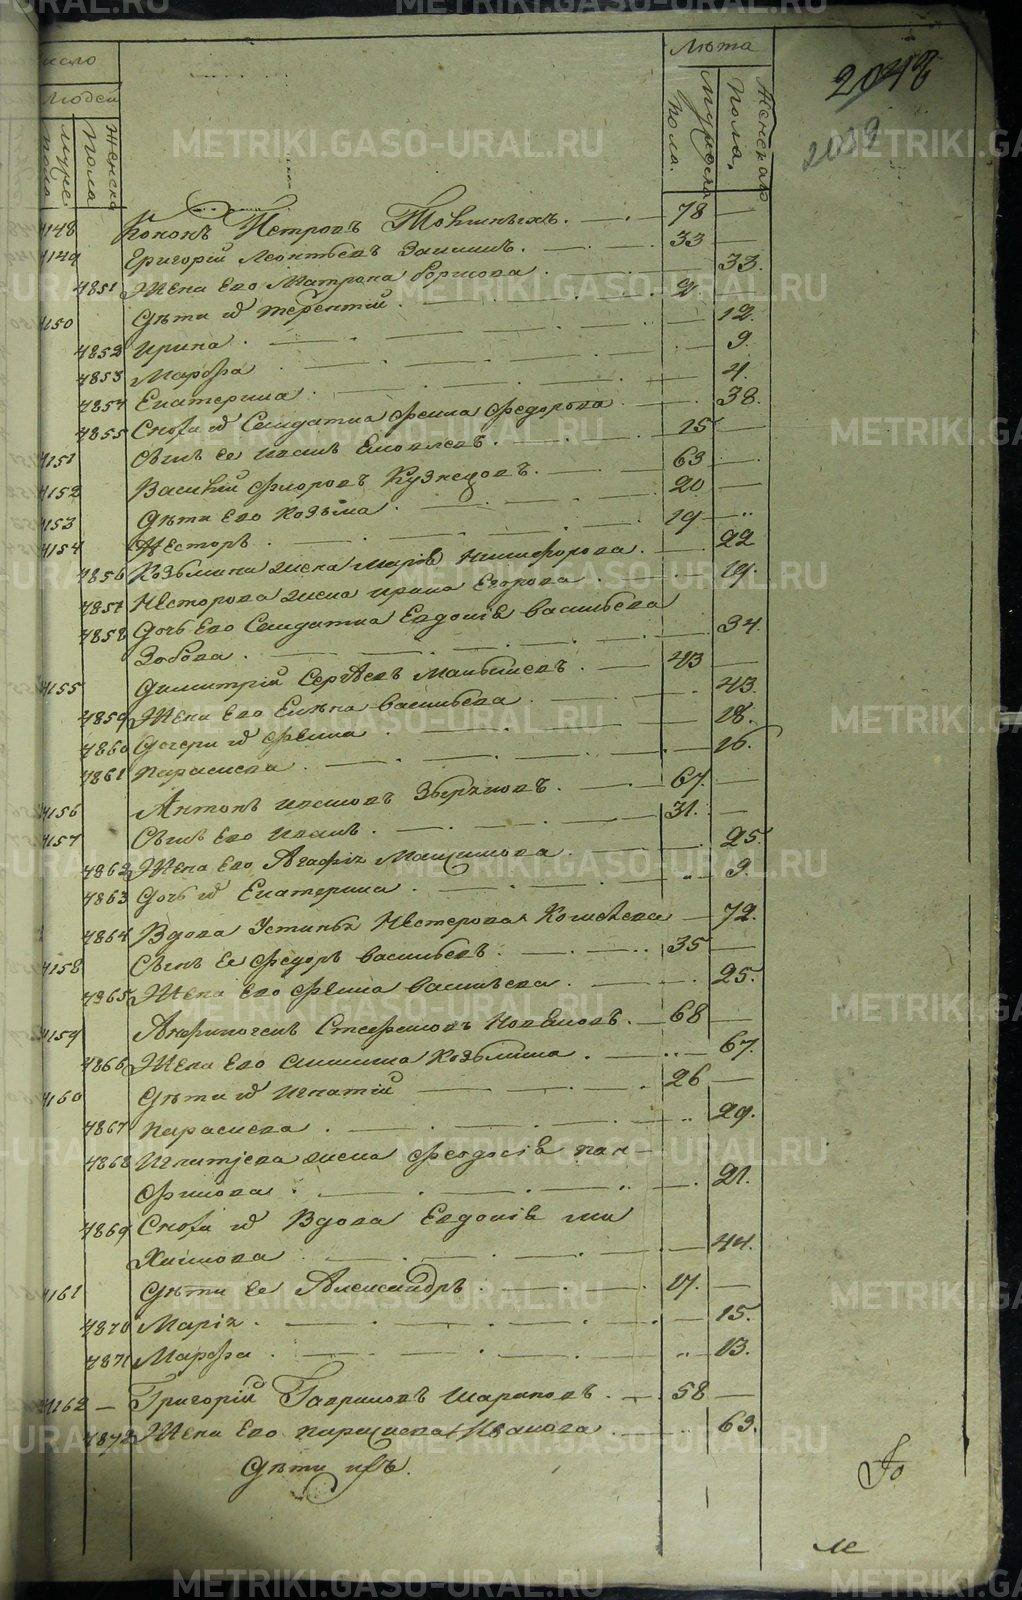 METRIKI.GASO-URAL.RU
число Людей Лѣта
муже пола Женска пола Мужска пола. Женскаго пола.
2048
Кононъ Петровъ 78 —
4149 Григорій Леонтьевъ 33 —
4851 Жена Его Матрона Борисова 33.
4150 Дѣти их Терентій 2
4852 Ирина 12.
4853 Марѳа 9.
4854 Екатерина 4.
4855 Сноха их Салдатка Фекла Федорова 38.
4151 Сынъ ее Иванъ Яковлевъ 15 —
4152 Василій Фроровъ Кузнецовъ 63 —
4153 Дѣти Его Козьма 20 —
4154 Несторъ 19 —
4856 Козьмина жена Марія Никифорова 22
4857 Несторова жена Ирина Егорова 19.
4858 Дочь Его Салдатка Евдокія Васильева
Зобова 34.
4155 Димитрій Сергѣевъ 43 —
4859 Жена Его Елѣна Васильева 43.
4860 Дочери их Фекла 18.
4861 Параскева 16.
4156 Антонъ Ивановъ Зверевовъ 67. —
4157 Сынъ Его Иванъ 31. —
4862 Жена Его Агафія Максимова 25.
4863 Дочь их Екатерина 9.
4864 Вдова Устинья Нестерова 72.
4158 Сынъ Ее Федоръ Васильевъ 35 —
4865 Жена Его Фекла Васильева 25.
4159 Стефановъ 68 —
4866 Жена Его Козьмина 67.
4160 Дѣти их Игнатій 26 —
4867 Параскева 29.
4868 Игнатіева жена Феодосія Пан-
филова 21.
4869 Сноха их Вдова Евдокія Ми
хайлова 44.
4161 Дѣти Ее Александръ 17. —
4870 Марія 15.
4871 Марѳа 13.
4162 — Григорій Гавриловъ Шараповъ 58 —
4872 Жена Его Параскева Иванова 63.
Дѣти ихъ.